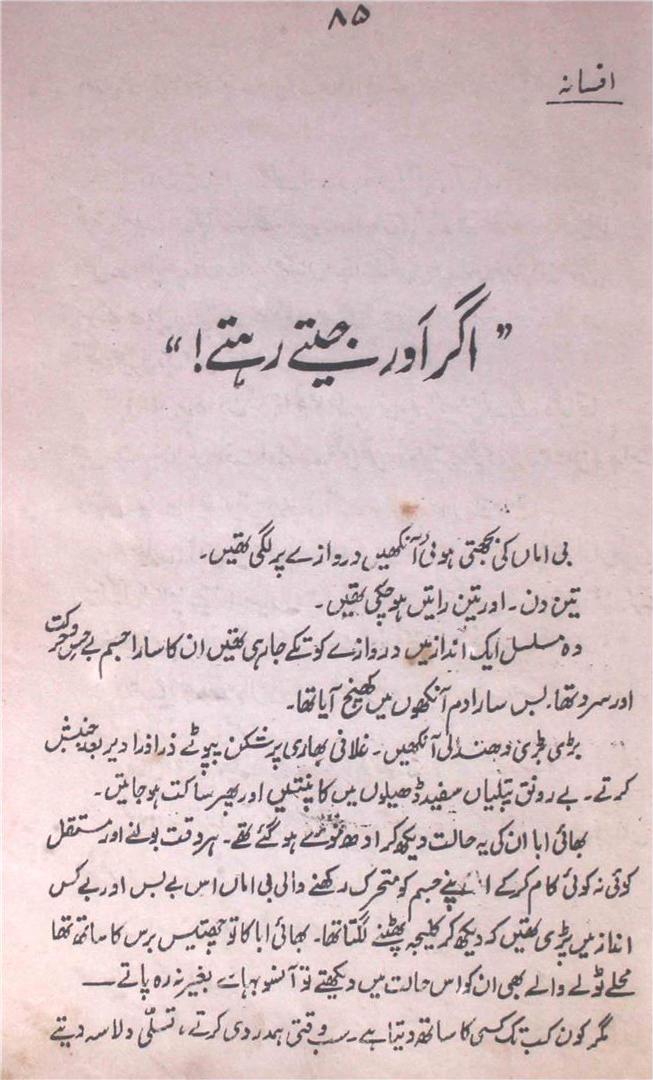 ۸۵
افسانہ
" اگر اَور جیتے رہتے ! "
بی اماں کی بجھتی ہوئی آنکھیں دروازے پر لگی تھیں۔
تین دن ۔ اور تین راتیں ہو چکی تھیں۔
وہ مسلسل ایک انداز میں دروازے کو تکے جا رہی تھیں ان کا سارا جسم بے حس و حرکت
اور سرد تھا۔ بس سارا دم آنکھوں میں کھنچ آیا تھا۔
بڑی بڑی دھندلی آنکھیں۔ غلافی بھاری پر شکن پپوٹے ذرا ذرا دیر بعد جنبش
کرتے۔ بے رونق پتلیاں سفید ڈھیلوں میں کانپتیں اور پھر ساکت ہو جاتیں۔
بھائی ابا ان کی یہ حالت دیکھ کر ادھ موئے ہو گئے تھے۔ ہر وقت بولنے اور مستقل
کوئی نہ کوئی کام کر کے اپنے جسم کو متحرک رکھنے والی بی اماں اس بے بس اور بے کس
انداز میں پڑی تھیں کہ دیکھ کر کلیجہ پھٹنے لگتا تھا۔ بھائی ابا کا تو چھتیس برس کا ساتھ تھا
محلے ٹولے والے بھی ان کو اس حالت میں دیکھتے تو آنسو بہائے بغیر نہ رہ پاتے ——
مگر کون کب تک کسی کا ساتھ دیتا ہے۔ سب وقتی ہمدردی کرتے، تسلّی دلاسہ دیتے